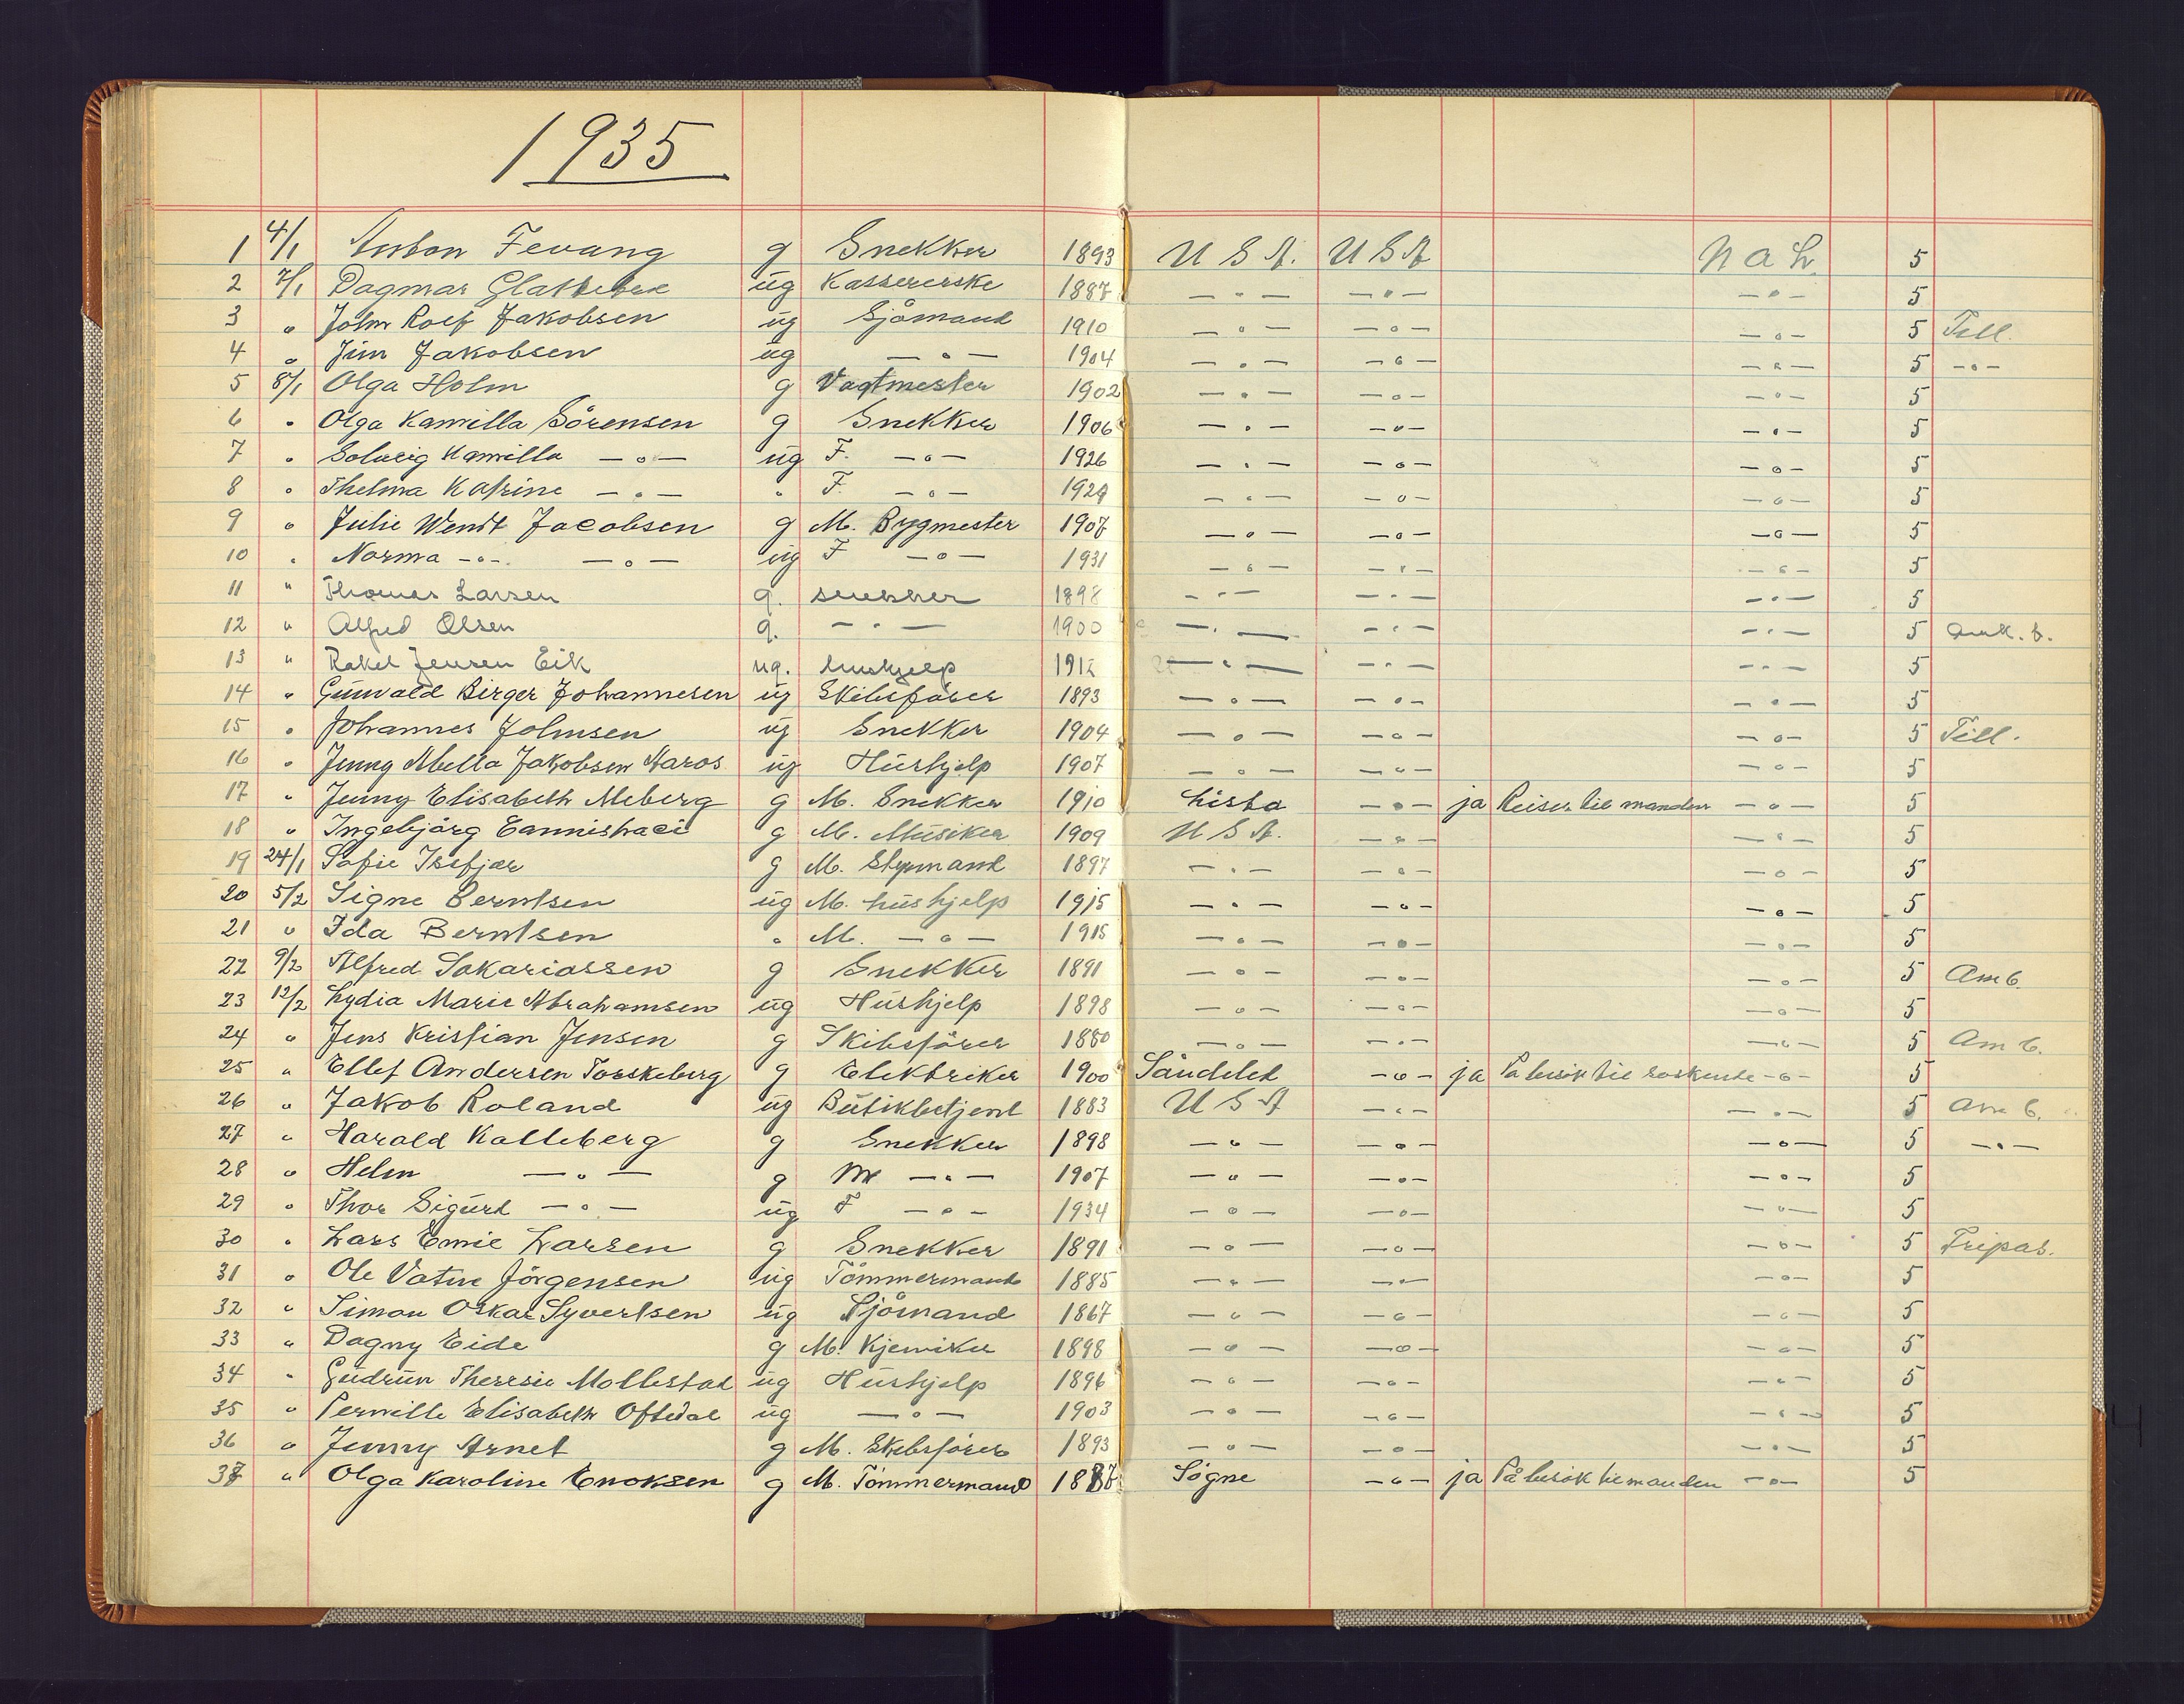 1935
1 4/1 Anton Fevang g Snekker 1893 U S A. U S A N a L. 5
2 7/1 Dagmar ug Kassererske 1887 — " — — " — — " — 5
3 " John Rolf Jakobsen ug Sjømand 1910 — " — — " — — " — 5 Till.
4 " Jim Jakobsen ug — " — 1904 — " — — " — — " — 5 — " —
5 8/1 Olga Holm g Vagtmester 1902 — " — — " — — " — 5
6 " Olga Kamilla Sørensen g Snekker 1906 — " — — " — — " — 5
7 " Solveig Kamilla — " — ug F. — " — 1926 — " — — " — — " — 5
8 " Thelma Katrine — " — " F. — " — 1929 — " — — " — — " — 5
9 " Julie Wendt Jacobsen g M. Bygmester 1907 — " — — " — — " — 5
10 " Norma — " — — " — ug F — " — 1931 — " — — " — — " — 5
11 " Thomas Larsen g. snekker 1898 — " — — " — — " — 5
12 " Alfred Olsen g. — " — 1900 — " — — " — — " — 5
13 " Rakel Jensen Eik ug. hushjelp 1912 — " — — " — — " — 5
14 " Gunvald Birger Johannesen ug Skibsfører 1893 — " — — " — — " — 5
15 " Johannes Johnsen ug Snekker 1904 — " — — " — — " — 5 Till.
16 " Jenny Abella Jakobsen Aaros ug Hushjelp 1907 — " — — " — — " — 5
17 " Jenny Elisabeth Meberg g M. Snekker 1910 Lista — " — ja Reiser til manden — " — 5
18 " Ingebjørg g M. Musiker 1909 U S A. — " — — " — 5
19 24/1 Sofie Isefjær g M. Styrmand 1897 — " — — " — — " — 5
20 5/2 Signe Berntsen ug M. hushjelp 1915 — " — — " — — " — 5
21 " Ida Berntsen " M. — " — 1915 — " — — " — — " — 5
22 9/2 Alfred Sakariassen g Snekker 1891 — " — — " — — " — 5 Am b.
23 12/2 Lydia Marie Abrahamsen ug Hushjelp 1898 — " — — " — — " — 5
24 " Jens Kristian Jensen g Skibsfører 1880 — " — — " — — " — 5 Am b.
25 " Ellef Andersen Torskeberg g Elektriker 1900 Søndeled — " — ja På besøk til søskende — " — 5
26 " Jakob Roland ug Butikbetjent 1883 U S A — " — — " — 5 Am b.
27 " Harald Kalleberg g Snekker 1898 — " — — " — — " — 5 — " —
28 " Helen — " — g M — " — 1907 — " — — " — — " — 5
29 " Thor Sigurd — " — ug F — " — 1934 — " — — " — — " — 5
30 " Lars Emil Larsen g Snekker 1891 — " — — " — — " — 5 Fripas.
31 " Ole Vatne Jørgensen ug Tømmermand 1885 — " — — " — — " — 5
32 " Simon Oskar Syvertsen ug Sjømand 1867 — " — — " — — " — 5
33 " Dagny Eide g M. Kjemiker 1898 — " — — " — — " — 5
34 " Gudrun Theresie Mollestad ug Hushjelp 1896 — " — — " — — " — 5
35 " Pernille Elisabeth Oftedal ug — " — 1903 — " — — " — — " — 5
36 " Jenny Arnet g M. Skibsfører 1893 — " — — " — — " — 5
37 " Olga Karoline Enoksen g M. Tømmermand Søgne — " — ja På besøk til manden — " — 5